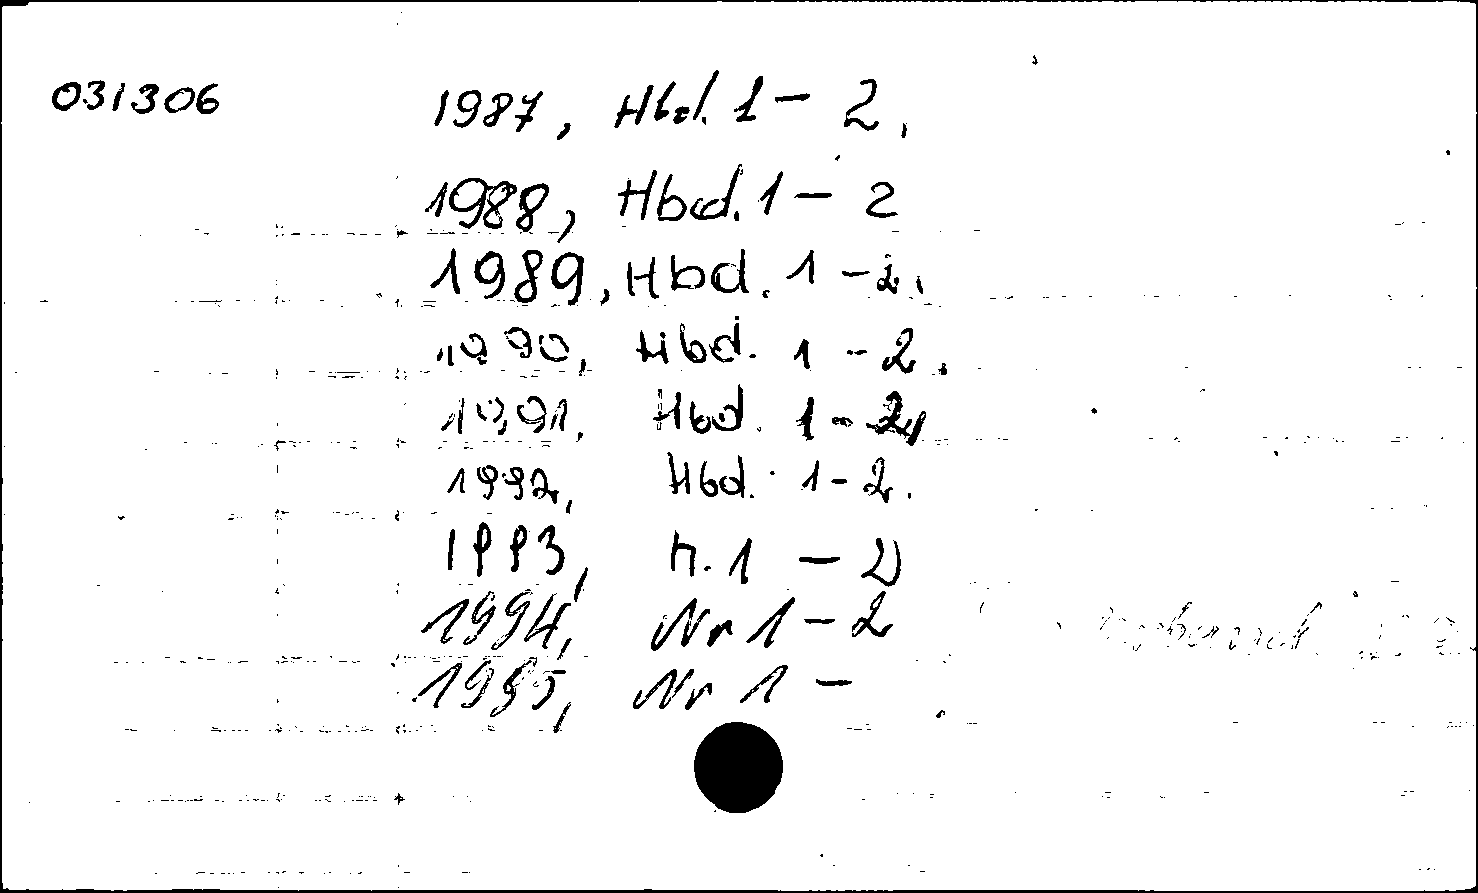 031306 1987, Hbd. 1 - 2.
1988, Hbd. 1 - 2
1989, Hbd. 1 - 2.
1990, Hbd. 1 - 2.
1991, Hbd. 1 - 2,
1992, Hbd. 1 - 2.
1993, H. 1 - 2
1994, Nr 1 - 2
1995, Nr 1 -